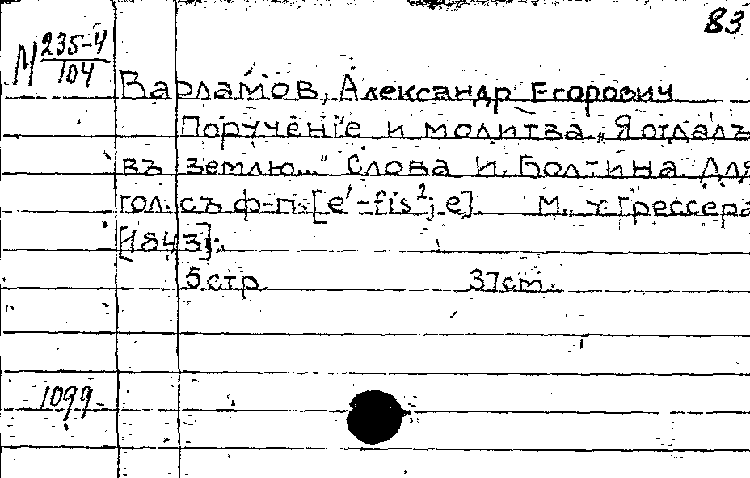 83
М 235-4
104
Варламов, Александр Егорович
Порученіе и молитва „Я отдалъ
въ землю..." Слова И. Болтина. Для
гол. съ ф-п. [e'-fis²; e]. М., у Грессера
[1843].
5 стр. 37 см.
1099